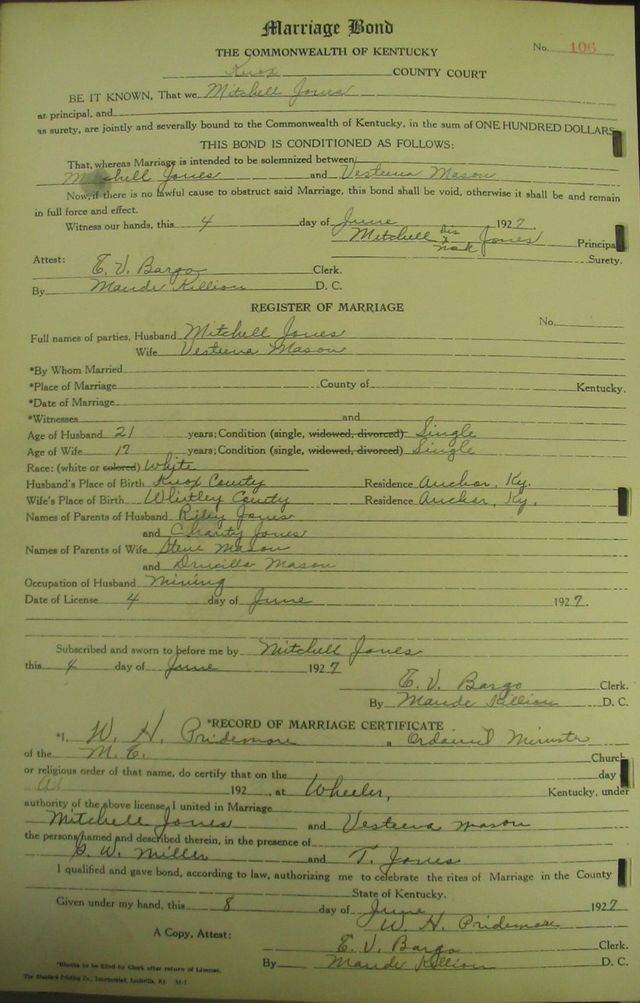 Marriage Bond
THE COMMONWEALTH OF KENTUCKY
No. 106
Knox COUNTY COURT
BE IT KNOWN, That we Mitchell Jones
as principal, and
as surety, are jointly and severally bound to the Commonwealth of Kentucky, in the sum of ONE HUNDRED DOLLARS
THIS BOND IS CONDITIONED AS FOLLOWS:
That, whereas Marriage is intended to be solemnized between
Mitchell Jones and Vesteena Mason
Now, if there is no lawful cause to obstruct said Marriage, this bond shall be void, otherwise it shall be and remain
in full force and effect.
Witness our hands, this 4 day of June 1927
Mitchell his x mark Jones Principal
Surety.
Attest:
E. V. Bargo Clerk.
By Maude Killion D. C.
REGISTER OF MARRIAGE
No.
Full names of parties, Husband Mitchell Jones
Wife Vesteena Mason
*By Whom Married
*Place of Marriage County of Kentucky.
*Date of Marriage
*Witnesses and
Age of Husband 21 years; Condition (single, widowed, divorced) Single
Age of Wife 17 years; Condition (single, widowed, divorced) Single
Race: (white or colored) White
Husband's Place of Birth Knox County Residence Anchor, Ky.
Wife's Place of Birth Whitley County Residence Anchor, Ky.
Names of Parents of Husband Riley Jones
and Charity Jones
Names of Parents of Wife Steve Mason
and Drucilla Mason
Occupation of Husband Mining
Date of License 4 day of June 1927.
Subscribed and sworn to before me by Mitchell Jones
this 4 day of June 1927
E. V. Bargo Clerk.
By Maude Killion D. C.
*RECORD OF MARRIAGE CERTIFICATE
*I, W. H. Pridemore a Ordained Minister
of the M. E. Church
or religious order of that name, do certify that on the day
192 , at Wheeler, Kentucky, under
authority of the above license, I united in Marriage
Mitchell Jones and Vesteena Mason
the persons named and described therein, in the presence of
W. Miller and T. Jones
I qualified and gave bond, according to law, authorizing me to celebrate the rites of Marriage in the County
State of Kentucky.
Given under my hand, this 8 day of June 1927
W. H. Pridemore
A Copy, Attest:
E. V. Bargo Clerk.
By Maude Killion D. C.
*Blanks to be filled by Clerk after return of License.
The Standard Printing Co., Incorporated, Louisville, Ky.